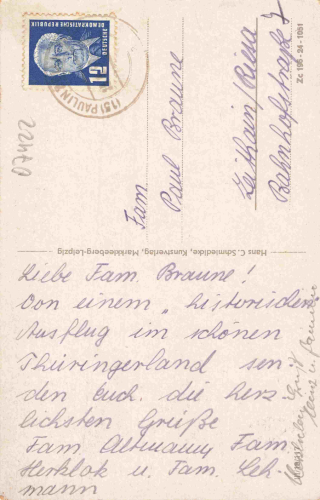 DEUTSCHE
DEMOKRATISCHE REPUBLIK
12
(15) PAULIN
07422
Fam.
Paul Braune
Zeithain/Riesa
Bahnhofstraße 7
Zc 196-24-1051
Hans C. Schmiedicke, Kunstverlag, Markkleeberg-Leipzig
Liebe Fam. Braune!
Von einem „historischen"
Ausflug im schönen
Thüringerland sen
den Euch die herz
lichsten Grüße
Fam. Altmann, Fam.
Herklok u. Fam. Leh-
mann